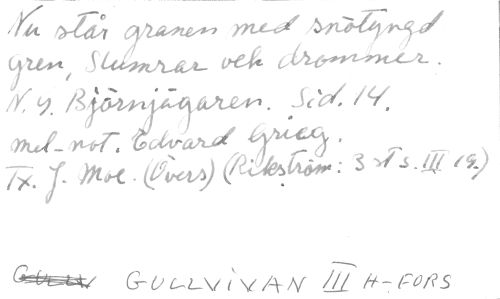 Nu står granen med snötyngd
gren, Slumrar och drömmer.
N. y. Björnjägaren. Sid. 14.
mel-not. Edvard Grieg.
Tx. J. Moe. (Övers) (Rikström: 3 st s. III 19.)
GULLVIVAN III H-FORS